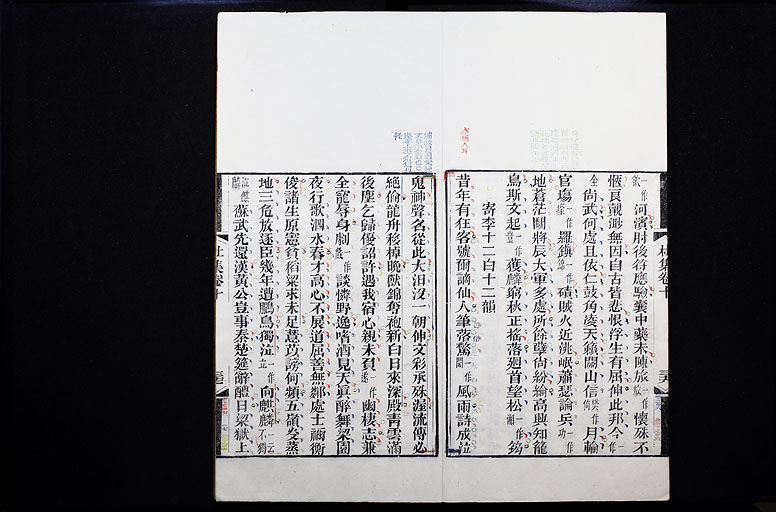 欲一作河濱肘後符應驗囊中藥未陳旅旅一作懷殊不
愜良覿渺無因自古皆悲恨浮生有屈伸此邦今一作
全尚武何處且依仁鼓角凌天籟關山信一作月輪
官場一作羅鎮磧賊火近洮岷蕭瑟論兵一作
地蒼茫鬭將辰大軍多處所餘孽尚紛綸高興知籠
鳥斯文起一作獲麟窮秋正搖落迴首望松一作筠
寄李十二白二十韻
昔年有狂客號爾謫仙人筆落驚一作風雨詩成泣
鬼神聲名從此大汩沒一朝伸文彩承殊渥流傳必
絕倫龍舟移棹晚獸錦奪袍新白日來深殿青雲滿
後塵乞歸優詔許遇我宿心親未負一作幽棲志兼
全寵辱身劇一作談憐野逸嗜酒見天真醉舞梁園
夜行歌泗水春才高心不展道屈善無鄰處士禰衡
俊諸生原憲貧稻粱求未足薏苡謗何頻五嶺炎蒸
地三危放逐臣幾年遭鵩鳥獨泣一作向麒麟一云不獨
泣麒麟蘇武先還漢黃公豈事秦楚筵辭醴日梁獄上
杜集卷十